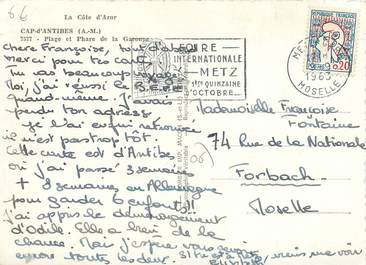 66
La Côte d'Azur
CAP-d'ANTIBES (A.-M.)
7577 - Plage et Phare de la Garoupe
Chère Françoise, tout d'abord
merci pour tes
Tu as beaucoup
Moi, j'ai réussi le
quand-même. J'avais
perdu ton adresse
je l'ai enfin retrouvée
il n'est pas trop tôt.
Cette carte est d'Antibes
où j'ai passé 3 semaines
+ 3 semaines en Allemagne
pour garder 6 enfants!!
J'ai appris le déménagement
d'Odile. Elle a bien de la
chance. Mais j'espère vous revoir
encore toutes les deux. Si tu es à Metz
viens me voir
FOIRE
INTERNATIONALE
METZ
1ère QUINZAINE
OCTOBRE
METZ
1963
MOSELLE
0,20
(06)
Mademoiselle Françoise
Fontaine
74 Rue de la Nationale
Forbach
Moselle